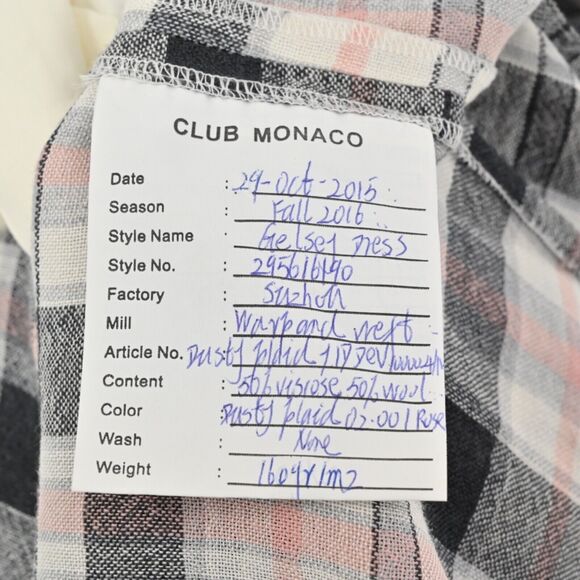 CLUB MONACO
Date : 29-Oct-2015
Season : Fall 2016
Style Name : Gelsey Dress
Style No. :
Factory : Suzhou
Mill : Warp and weft
Article No. Dusty plaid
Content : 50% viscose 50% wool
Color : Dusty plaid 05-001 Rose
Wash : None
Weight : 160gr/m2